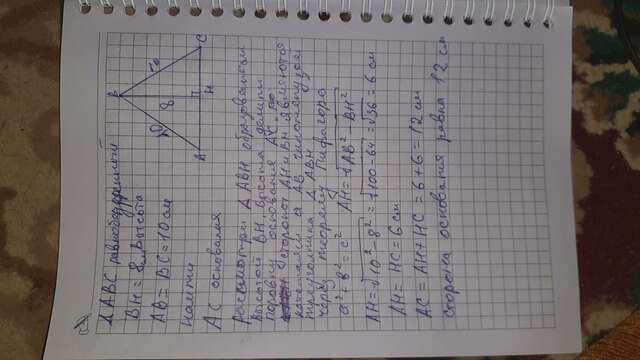 △ ABC равнобедренный
BH = 8см высота
AB = BC = 10 см
найти
AC основания
B
10
10
8
A
H
C
Рассмотрим △ ABH образованный
высотой BH, высота делит
пополам основание AC
стороны AH и BH являются
катетами а AB гипотенуза
треугольника △ ABH
через теорему Пифагора
a² + b² = c² AH = √AB² - BH²
AH = √10² - 8² = √100 - 64 = √36 = 6 см
AH = HC = 6 см
AC = AH + HC = 6 + 6 = 12 см
сторона основания равна 12 см